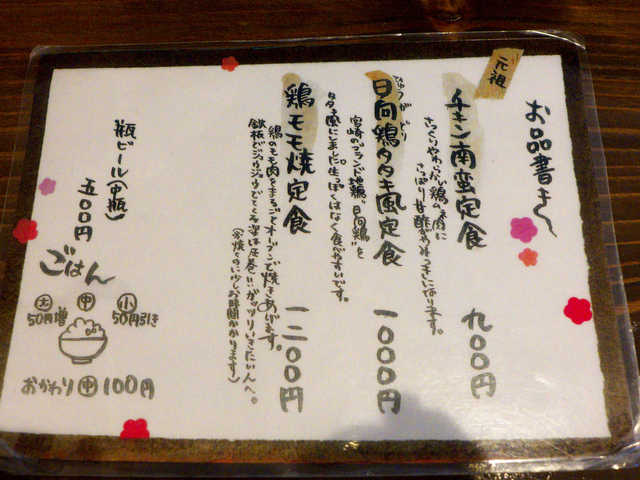 お品書き
元祖
チキン南蛮定食 九〇〇円
さっくりやわらかい鶏の胸肉に
さっぱり甘酢がやみつきになります。
ひゅうがどり
日向鶏タタキ風定食 一〇〇〇円
宮崎のブランド地鶏"日向鶏"を
タタキ風にしました。生っぽくはなく食べやすいです。
鶏モモ焼定食 一二〇〇円
鶏のモモ肉をまるごとオーブンで焼きあげます。
鉄板でジュウジュウでてくる姿は圧巻!!ガッツリいきたい人へ。
(多少焼くのに少しお時間かかります)
瓶ビール(中瓶)
五〇〇円
ごはん
大 中 小
50円増 50円引き
おかわり 中 100円